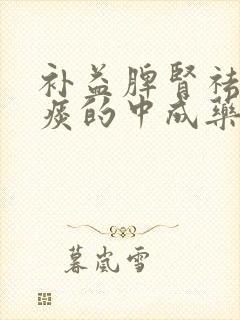 补益脾肾祛
痰的中成药
暮岚雪